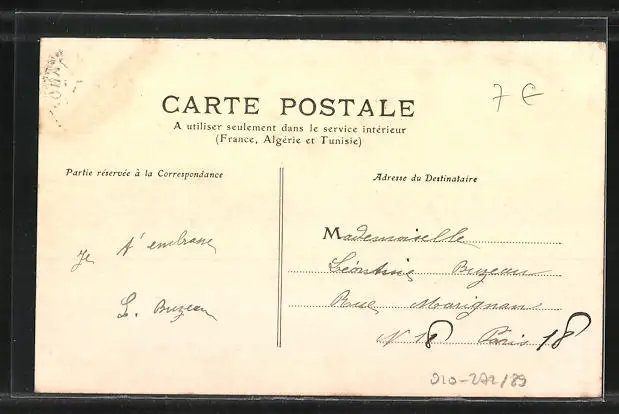 7 €
CARTE POSTALE
A utiliser seulement dans le service intérieur
(France, Algérie et Tunisie)
Partie réservée à la Correspondance
Adresse du Destinataire
Je t'embrasse
L. Buzeau
Mademoiselle
Léontine Buzeau
Rue Marignan
N 18 Paris 18
210-272/89